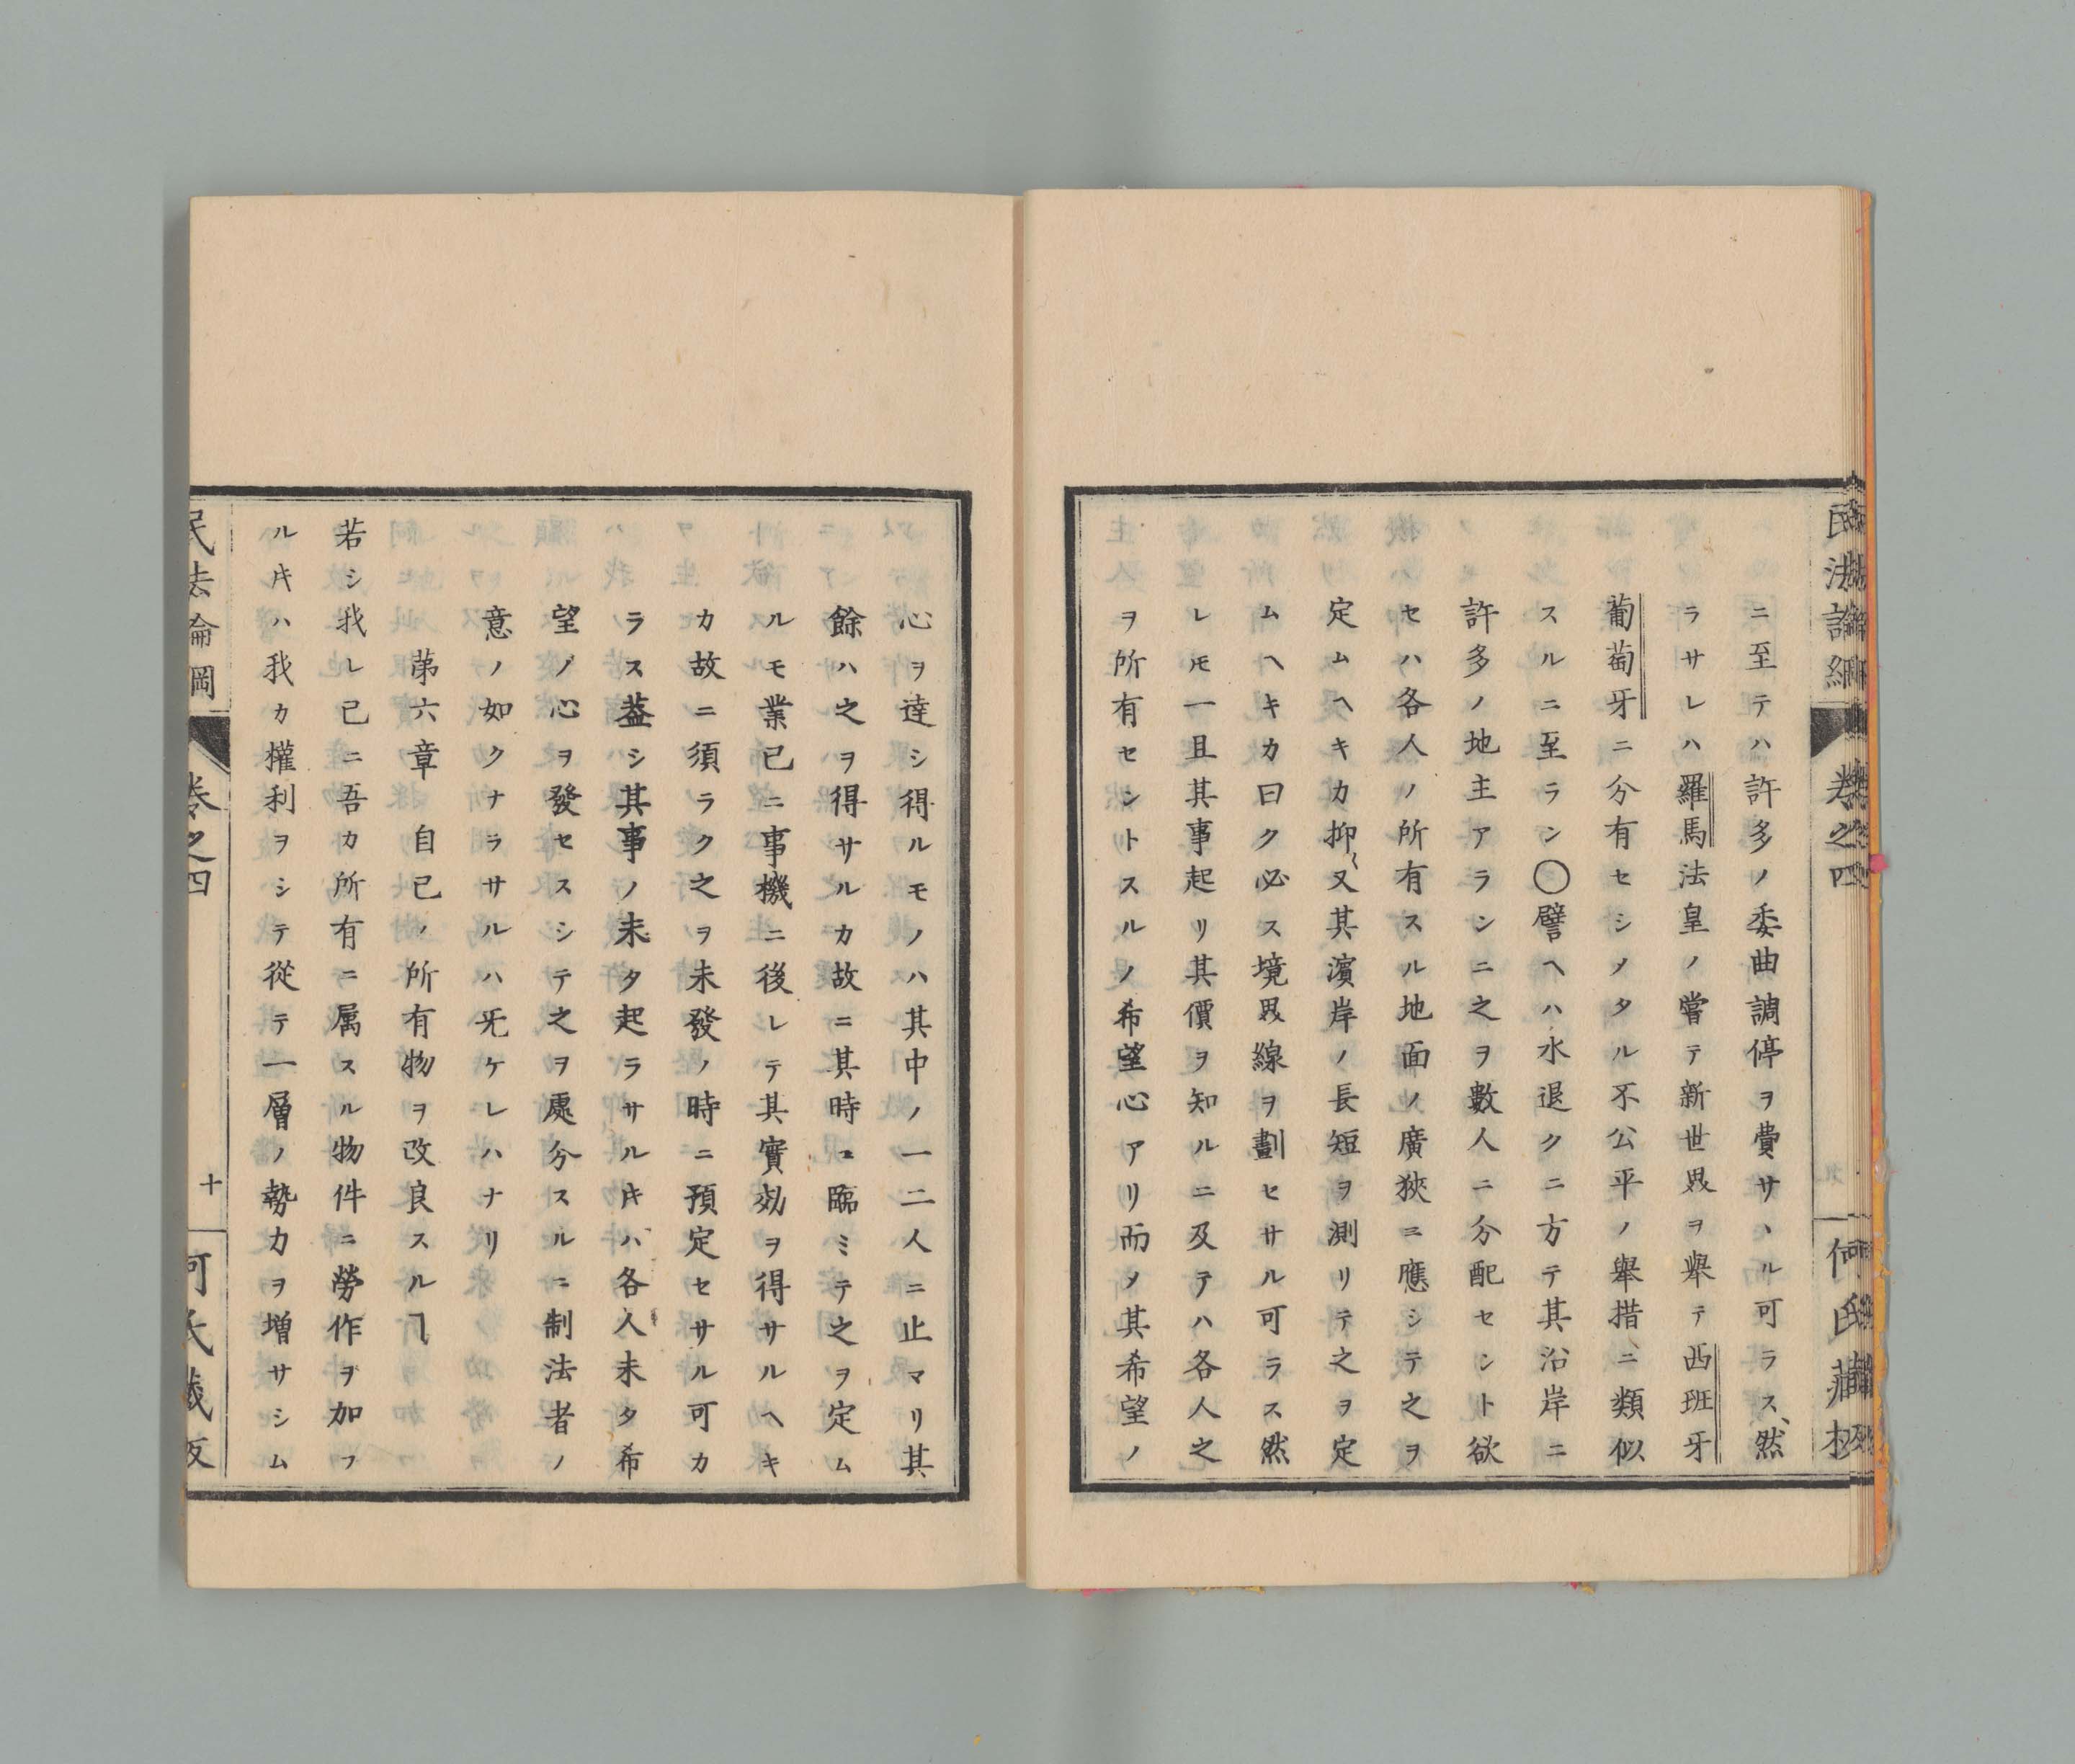 民法論綱
卷之四
何氏藏板
ニ至テハ許多ノ委曲調停ヲ費サヽル可ラス、然
ラサレハ羅馬法皇ノ嘗テ新世界ヲ舉テ西班牙
葡萄牙ニ分有セシメタル不公平ノ舉措ニ類似
スルニ至ラン〇譬ヘハ水退クニ方テ其沿岸ニ
許多ノ地主アランニ之ヲ數人ニ分配セント欲
セハ各人ノ所有スル地面ノ廣狹ニ應シテ之ヲ
定ムヘキカ抑〻又其濱岸ノ長短ヲ測リテ之ヲ定
ムヘキカ曰ク必ス境界線ヲ劃セサル可ラス然
レ𪜈一旦其事起リ其價ヲ知ルニ及テハ各人之
ヲ所有セントスルノ希望心アリ而〆其希望ノ
心ヲ達シ得ルモノハ其中ノ一二人ニ止マリ其
餘ハ之ヲ得サルカ故ニ其時ニ臨ミテ之ヲ定ム
ルモ業已ニ事機ニ後レテ其實効ヲ得サルヘキ
カ故ニ須ラク之ヲ未發ノ時ニ預定セサル可カ
ラス葢シ其事ノ未タ起ラサル𪜈ハ各人未タ希
望ノ心ヲ發セスシテ之ヲ處分スルニ制法者ノ
意ノ如クナラサルハ旡ケレハナリ
第六章 自己ノ所有物ヲ改良スルヿ
若シ我レ已ニ吾カ所有ニ属スル物件ニ勞作ヲ加フ
ル𪜈ハ我カ權利ヲシテ從テ一層ノ勢力ヲ増サシム
民法論綱
卷之四
十
何氏藏板